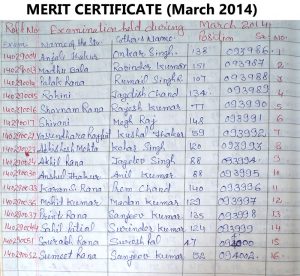 MERIT CERTIFICATE (March 2014)
Roll No Examination held during March 2014
Name of the Stu Father Name Position Se.
Anjali Thakur Onkar Singh 138 093986 1
Madhu Bala Ravinder Kumar 151 093987 2
Palak Rana Kumail Singh 107 093988 3
Rohini Jagdish Chand 134 093989 4
14029016 Shavnam Rana Rajesh Kumar 77 093990 5
14029017 Shivani Megh Raj 148 093991 6
Kushal Thakur 59 093992 7
Abhishek Mehta Kehar Singh 120 093993 8
Akhil Rana Jagdev Singh 88 093994 9
Anshul Thakur Anil Kumar 88 093995 10
Karan S. Rana Prem Chand 140 093996 11
14029036 Mohit Kumar Madan Kumar 129 093997 12
Prinit Rana Sanjeev Kumar 135 093998 13
14029044 Sahil Patial Surinder Kumar 124 093999 14
Saurabh Rana Suresh Pal 47 15
Sumeet Rana Sanjeev Kumar 152 094002 16